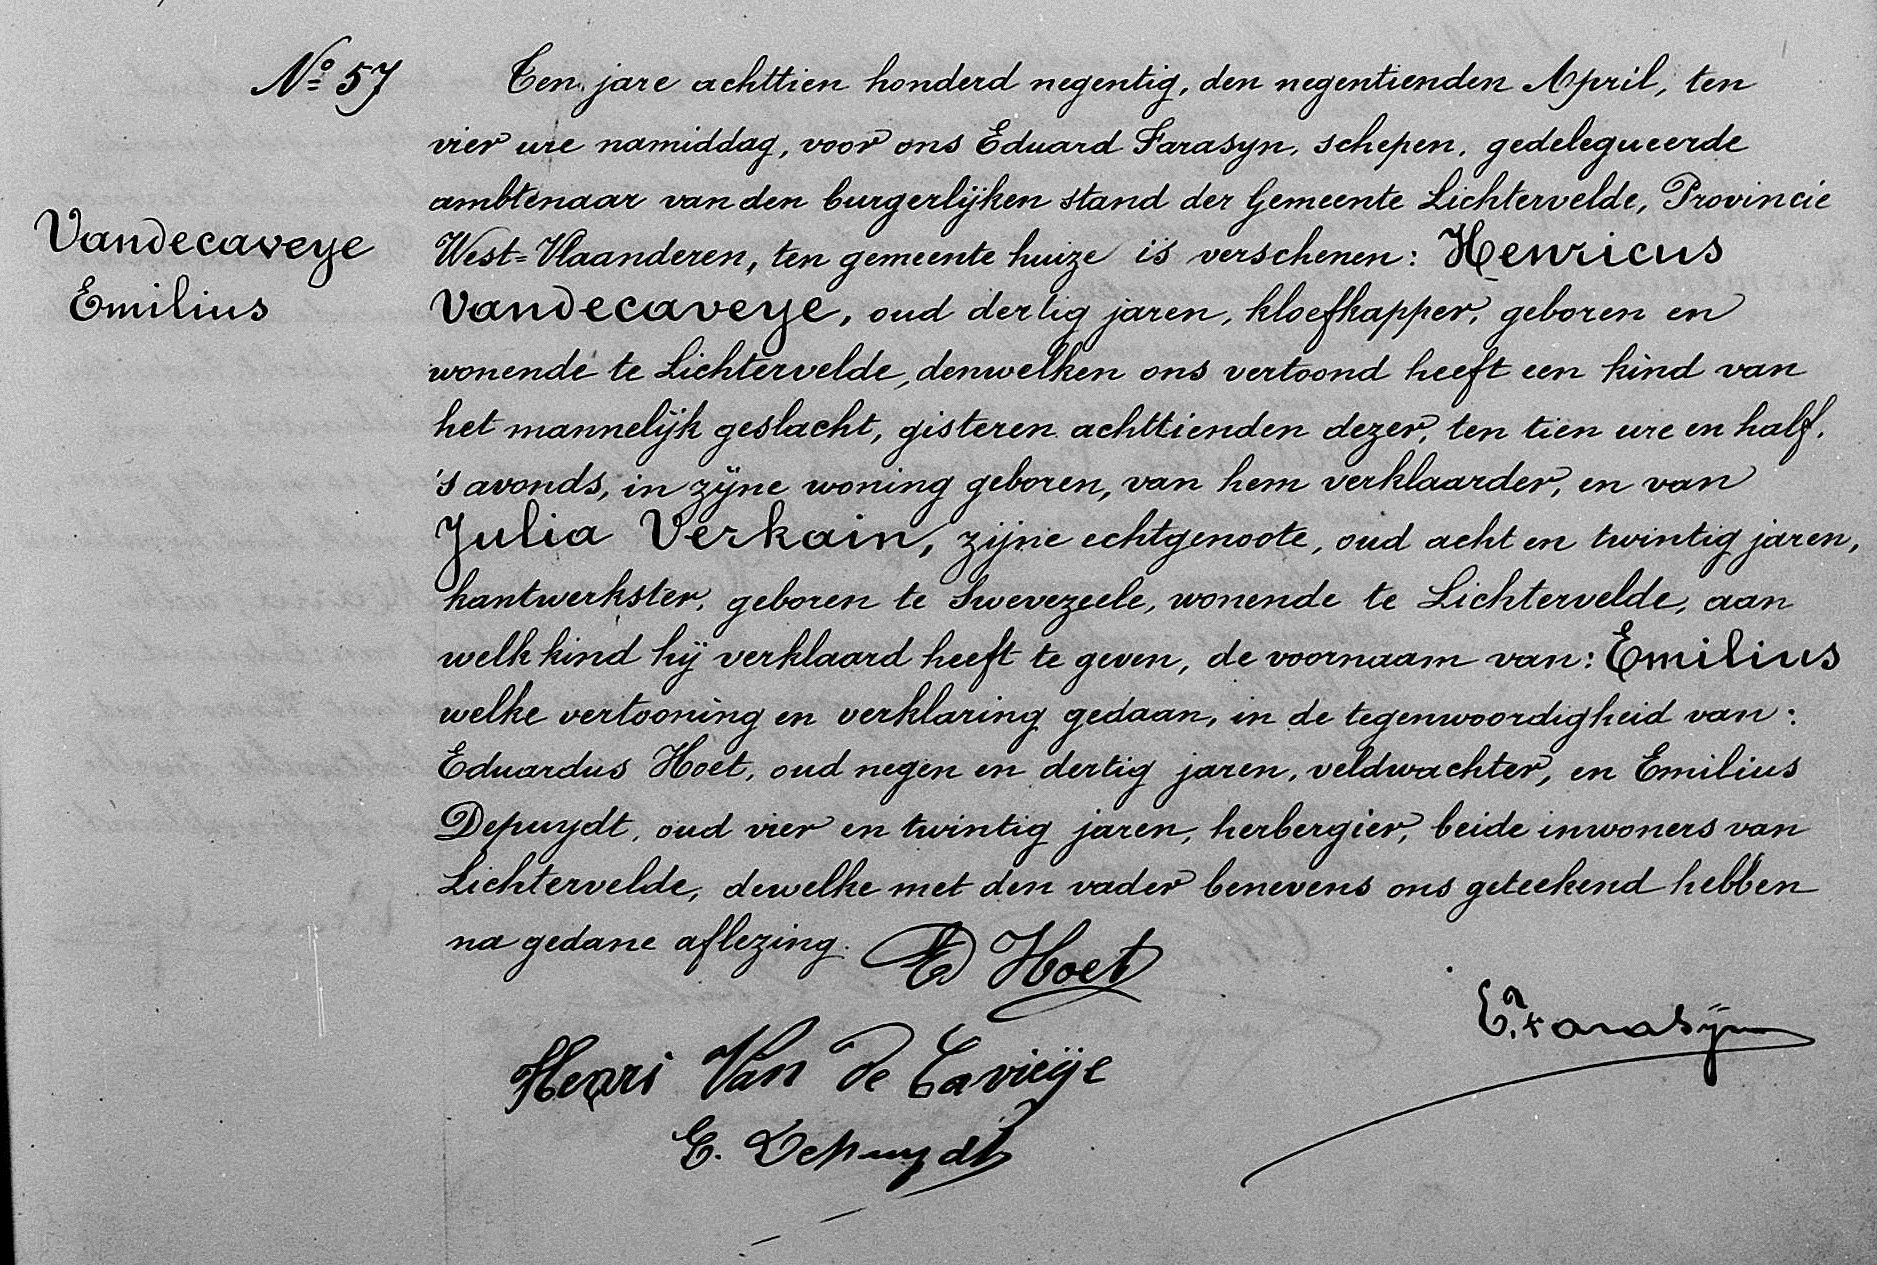 Nº 57
Ten jare achttien honderd negentig, den negentienden April, ten
vier ure namiddag, voor ons Eduard Farasyn, schepen, gedelegueerde
ambtenaar van den burgerlijken stand der Gemeente Lichtervelde, Provincie
Vandecaveye
Emilius
West=Vlaanderen, ten gemeente huize is verschenen: Henricus
Vandecaveye, oud dertig jaren, kloefkapper, geboren en
wonende te Lichtervelde, denwelken ons vertoond heeft een kind van
het mannelijk geslacht, gisteren achttienden dezer, ten tien ure en half.
's avonds, in zijne woning geboren, van hem verklaarder, en van
Julia Verkain, zijne echtgenoote, oud acht en twintig jaren,
kantwerkster, geboren te Swevezeele, wonende te Lichtervelde, aan
welk kind hij verklaard heeft te geven, de voornaam van: Emilius
welke vertooning en verklaring gedaan, in de tegenwoordigheid van:
Eduardus Hoet, oud negen en dertig jaren, veldwachter, en Emilius
Depuydt, oud vier en twintig jaren, herbergier, beide inwoners van
Lichtervelde, dewelke met den vader benevens ons geteekend hebben
na gedane aflezing.
Ed Hoet
E. Farasijn
Henri Van de Cavieye
E. Depuydt